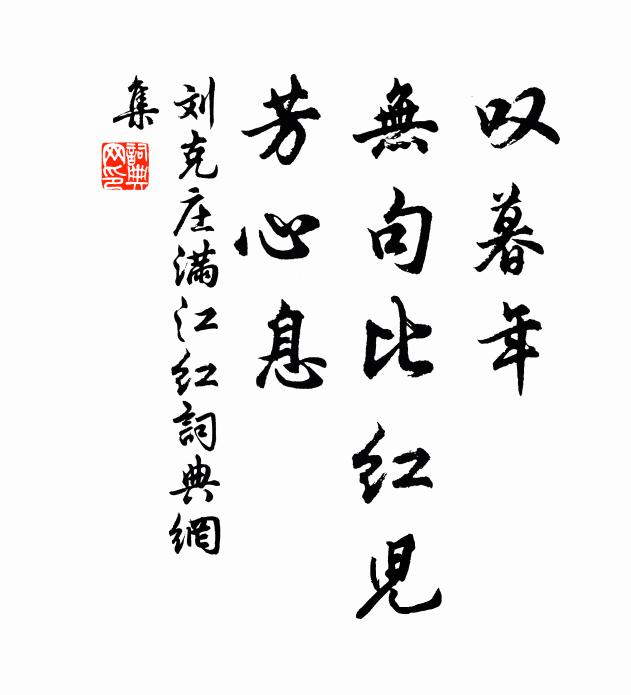 叹暮年
無句比红児
芳心息
刘克庄满江红詞典網
集
詞典網印